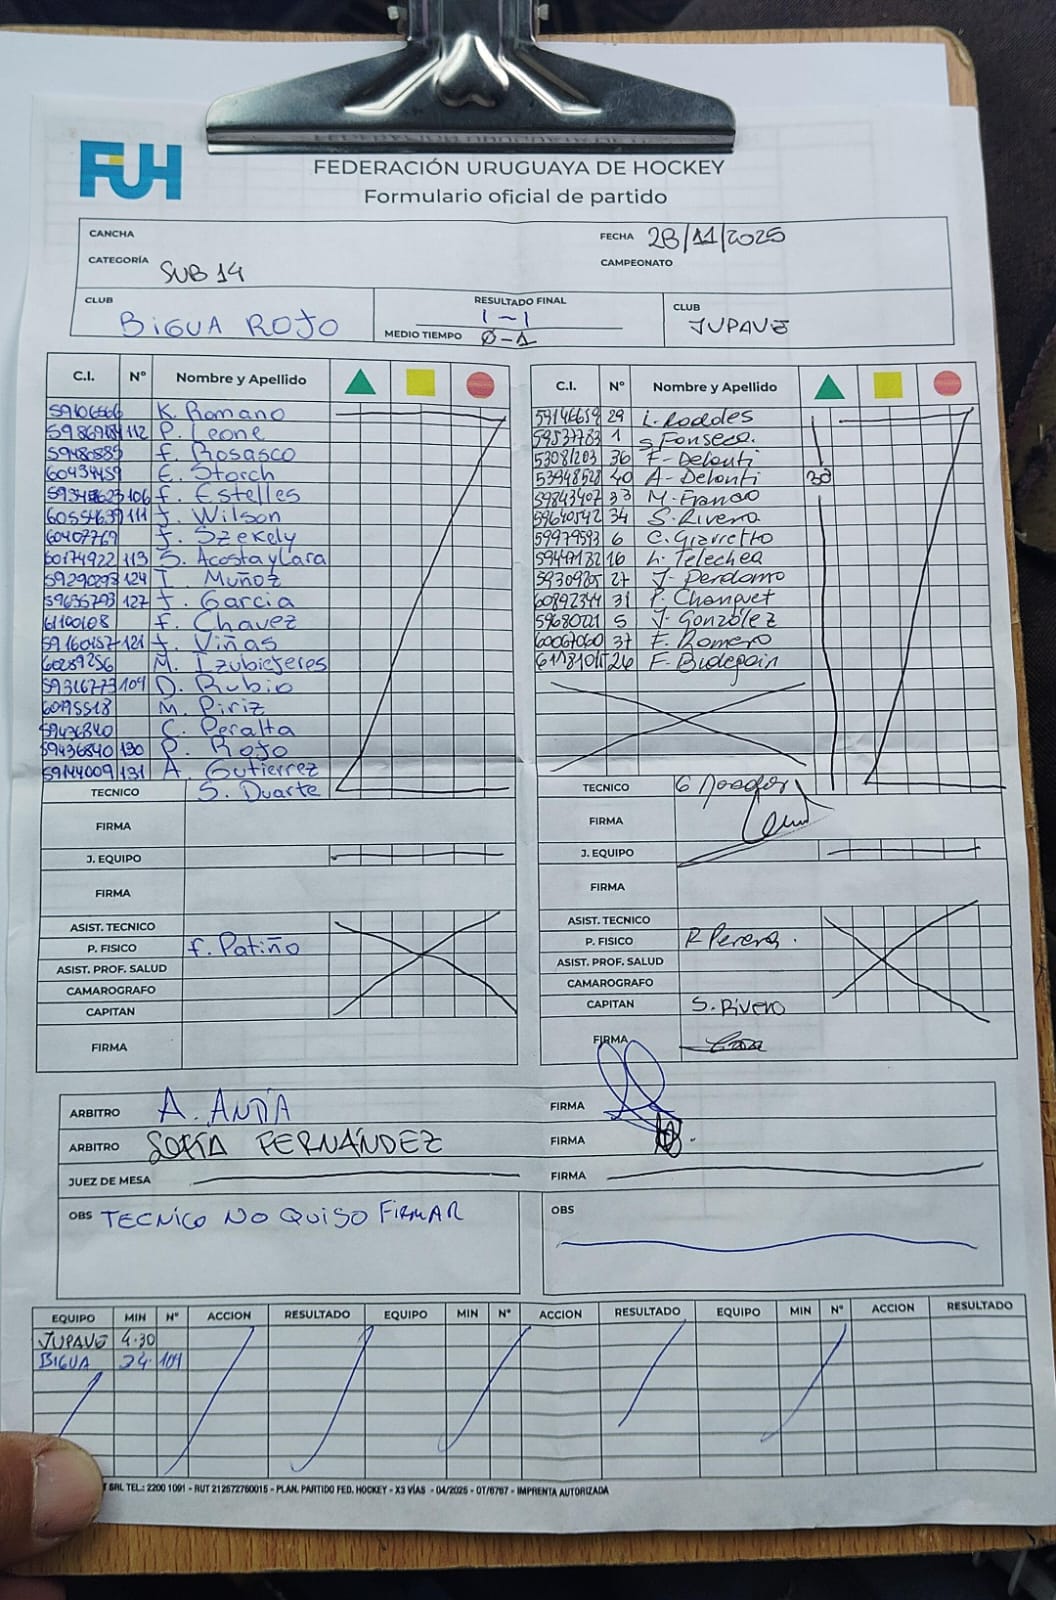 FUH
FEDERACIÓN URUGUAYA DE HOCKEY
Formulario oficial de partido
CANCHA
FECHA 28/11/2025
CATEGORÍA SUB 14
CAMPEONATO
CLUB BIGUA ROJO
RESULTADO FINAL 1-1
MEDIO TIEMPO 0-1
CLUB JUPAVE
C.I. Nº Nombre y Apellido
K. Romano
112 P. Leone
F. Rosasco
E. Storch
106 F. Estelles
111 J. Wilson
60407769 J. Szekely
60174922 113 S. Acosta y Lara
59290293 124 I. Muñoz
127 J. Garcia
61100108 F. Chavez
59160457 121 J. Viñas
60289256 M. Izubiejeres
59316773 109 D. Rubio
60195518 M. Piriz
59436840 C. Peralta
59436840 130 P. Rojo
59144009 131 A. Gutierrez
TECNICO S. Duarte
FIRMA
J. EQUIPO
FIRMA
ASIST. TECNICO
P. FISICO F. Patiño
ASIST. PROF. SALUD
CAMAROGRAFO
CAPITAN
FIRMA
C.I. Nº Nombre y Apellido
59146659 29 L. Roddes
59537783 1 S Fonseca.
53081203 36 F- Delonti
53948528 40 A- Delonti 30
59843407 33 M. Franco
59640542 34 S. Rivero
59979593 6 C. Giarretto
59447132 16 L. Telechea
27 J- Perdomo
60892344 31 P. Changuet
5968021 5 J- González
60067060 37 F. Romero
26 F. Budepain
TECNICO G
FIRMA
J. EQUIPO
FIRMA
ASIST. TECNICO
P. FISICO R Perera.
ASIST. PROF. SALUD
CAMAROGRAFO
CAPITAN S. Rivero
FIRMA
ARBITRO A. ANTÍA FIRMA
ARBITRO SOFÍA FERNÁNDEZ FIRMA
JUEZ DE MESA FIRMA
OBS TECNICO NO QUISO FIRMAR
OBS
EQUIPO MIN Nº ACCION RESULTADO EQUIPO MIN Nº ACCION RESULTADO EQUIPO MIN Nº ACCION RESULTADO
JUPAVE 4.30
BIGUA 24. 109
SRL TEL.: 2200 1091 - RUT 212572760015 - PLAN. PARTIDO FED. HOCKEY - X3 VÍAS - 04/2025 - OT/6767 - IMPRENTA AUTORIZADA